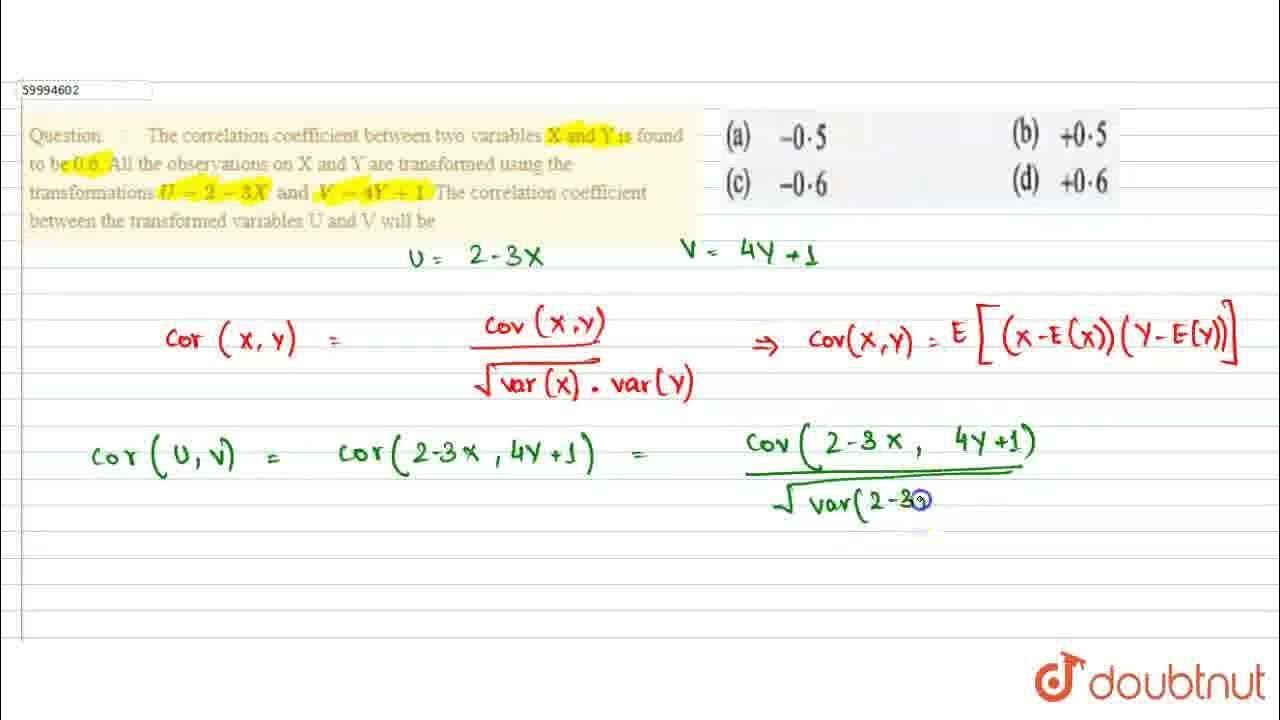 59994602
Question. The correlation coefficient between two variables X and Y is found
to be 0.6. All the observations on X and Y are transformed using the
transformations U = 2 - 3X and V = 4Y + 1. The correlation coefficient
between the transformed variables U and V will be
(a) -0·5 (b) +0·5
(c) -0·6 (d) +0·6
U = 2-3X V = 4Y+1
cor (X, Y) = cov (X,Y) / √var(X) . var(Y) ⇒ cov(X,Y) = E [(X-E(X)) (Y-E(Y))]
cor (U, V) = cor (2-3X, 4Y+1) = cov (2-3X, 4Y+1) / √var(2-3
doubtnut